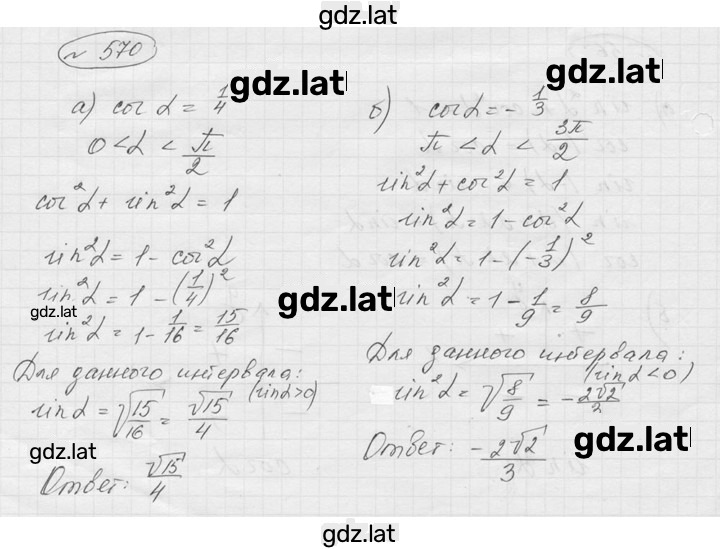 gdz.lat
№ 570
gdz.lat gdz.lat
а) cos α = 1/4
0 < α < π/2
cos²α + sin²α = 1
sin²α = 1 - cos²α
sin²α = 1 - (1/4)²
gdz.lat
sin²α = 1 - 1/16 = 15/16
Для данного интервала:
(sinα>0)
sinα = √15/16 = √15/4
gdz.lat
Ответ: √15/4
б) cosα = - 1/3
π < α < 3π/2
sin²α + cos²α = 1
sin²α = 1 - cos²α
sin²α = 1 - (-1/3)²
gdz.lat gdz.lat
sin²α = 1 - 1/9 = 8/9
Для данного интервала:
(sinα<0)
sin²α = √8/9 = - 2√2/3
Ответ: - 2√2/3
gdz.lat
gdz.lat